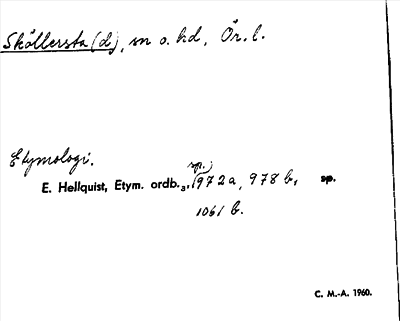 Sköllersta(d), sn o. hd, Ör. l.
Etymologi.
sp.
E. Hellquist, Etym. ordb.3, 972 a, 978 b, sp.
1061 b.
C. M.-A. 1960.